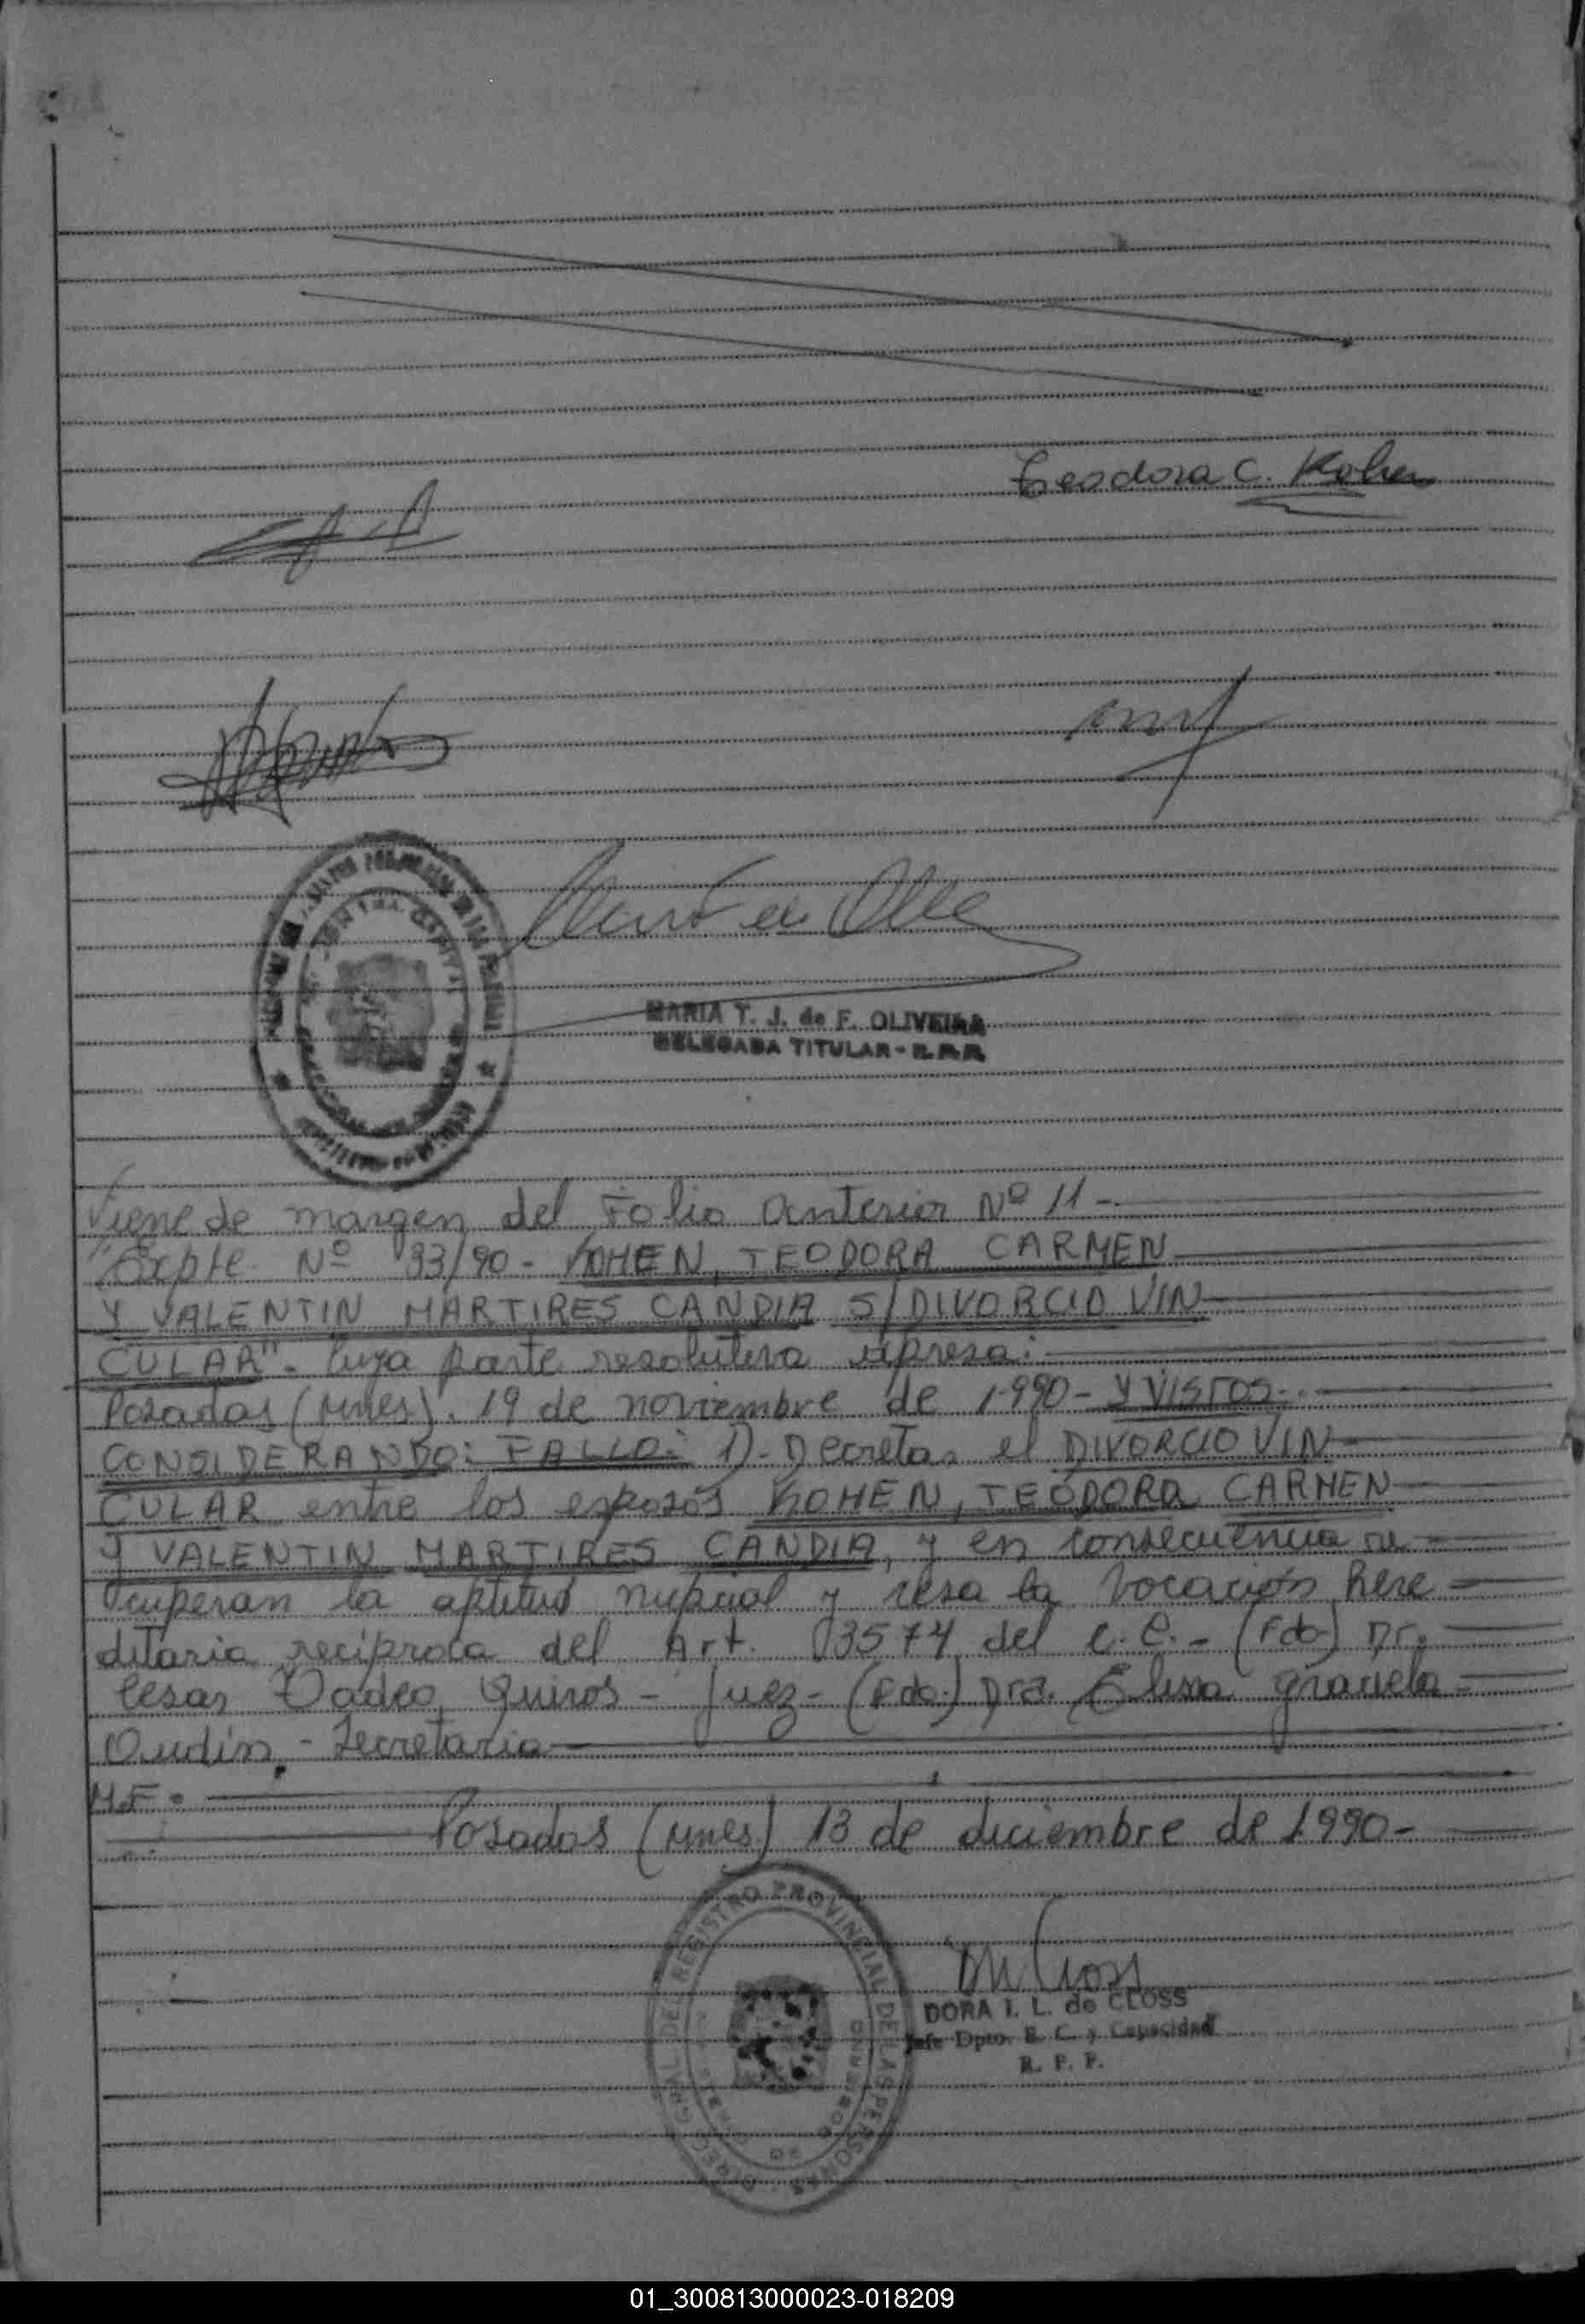 Teodora C. Kohen
MARIA T. J. de F. OLIVEIRA
DELEGADA TITULAR - R.P.P.
Viene de margen del Folio anterior Nº 11 -
"Expte Nº 93/90 - KOHEN, TEODORA CARMEN
Y VALENTIN MARTIRES CANDIA S/DIVORCIO VIN
CULAR" - Cuya parte resolutiva expresa:
Posadas (Mnes). 19 de noviembre de 1.990 - Y VISTOS -
CONSIDERANDO: FALLO: 1) - Decretar el DIVORCIO VIN
CULAR entre los esposos KOHEN, TEODORA CARMEN
Y VALENTIN MARTIRES CANDIA, y en consecuencia re
cuperan la aptitud nupcial y cesa la vocación here
ditaria recíproca del Art. 3574 del C.C. - (Fdo) Dr.
Cesar Tadeo Quiros - Juez - (Fdo.) Dra. Elisa Graciela
Oudin - Secretaria
M.F.
Posadas (Mnes) 13 de diciembre de 1990 -
DIREC. GRAL. DEL REGISTRO PROVINCIAL DE LAS PERSONAS
DORA I. L. de CLOSS
Jefe Dpto. E. C. y Capacidad
R. P. P.
01_300813000023-018209